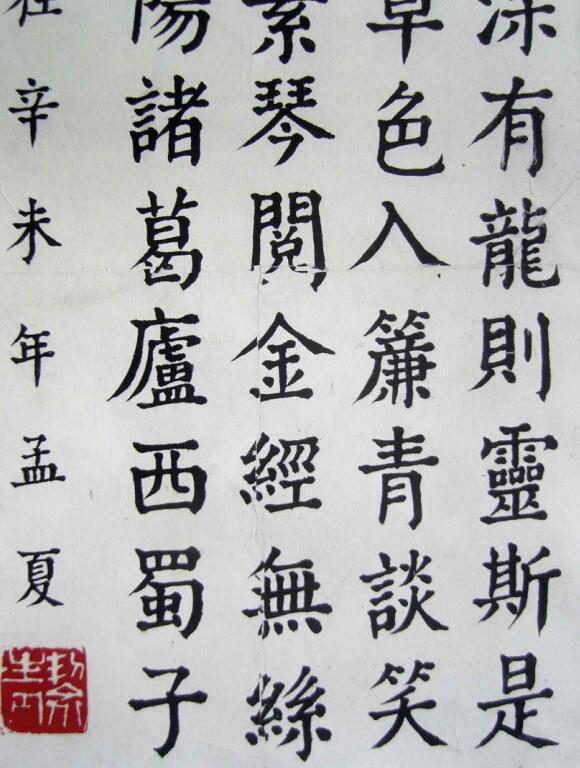 深有龍則靈斯是
草色入簾青談笑
素琴閱金經無絲
陽諸葛廬西蜀子
在辛未年孟夏